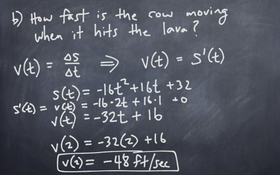 b) How fast is the cow moving
when it hits the lava?
v(t) = Δs/Δt ⟹ v(t) = s'(t)
s(t) = -16t² + 16t + 32
s'(t) = v(t) = -16·2t + 16·1 + 0
v(t) = -32t + 16
v(2) = -32(2) + 16
v(2) = -48 ft/sec